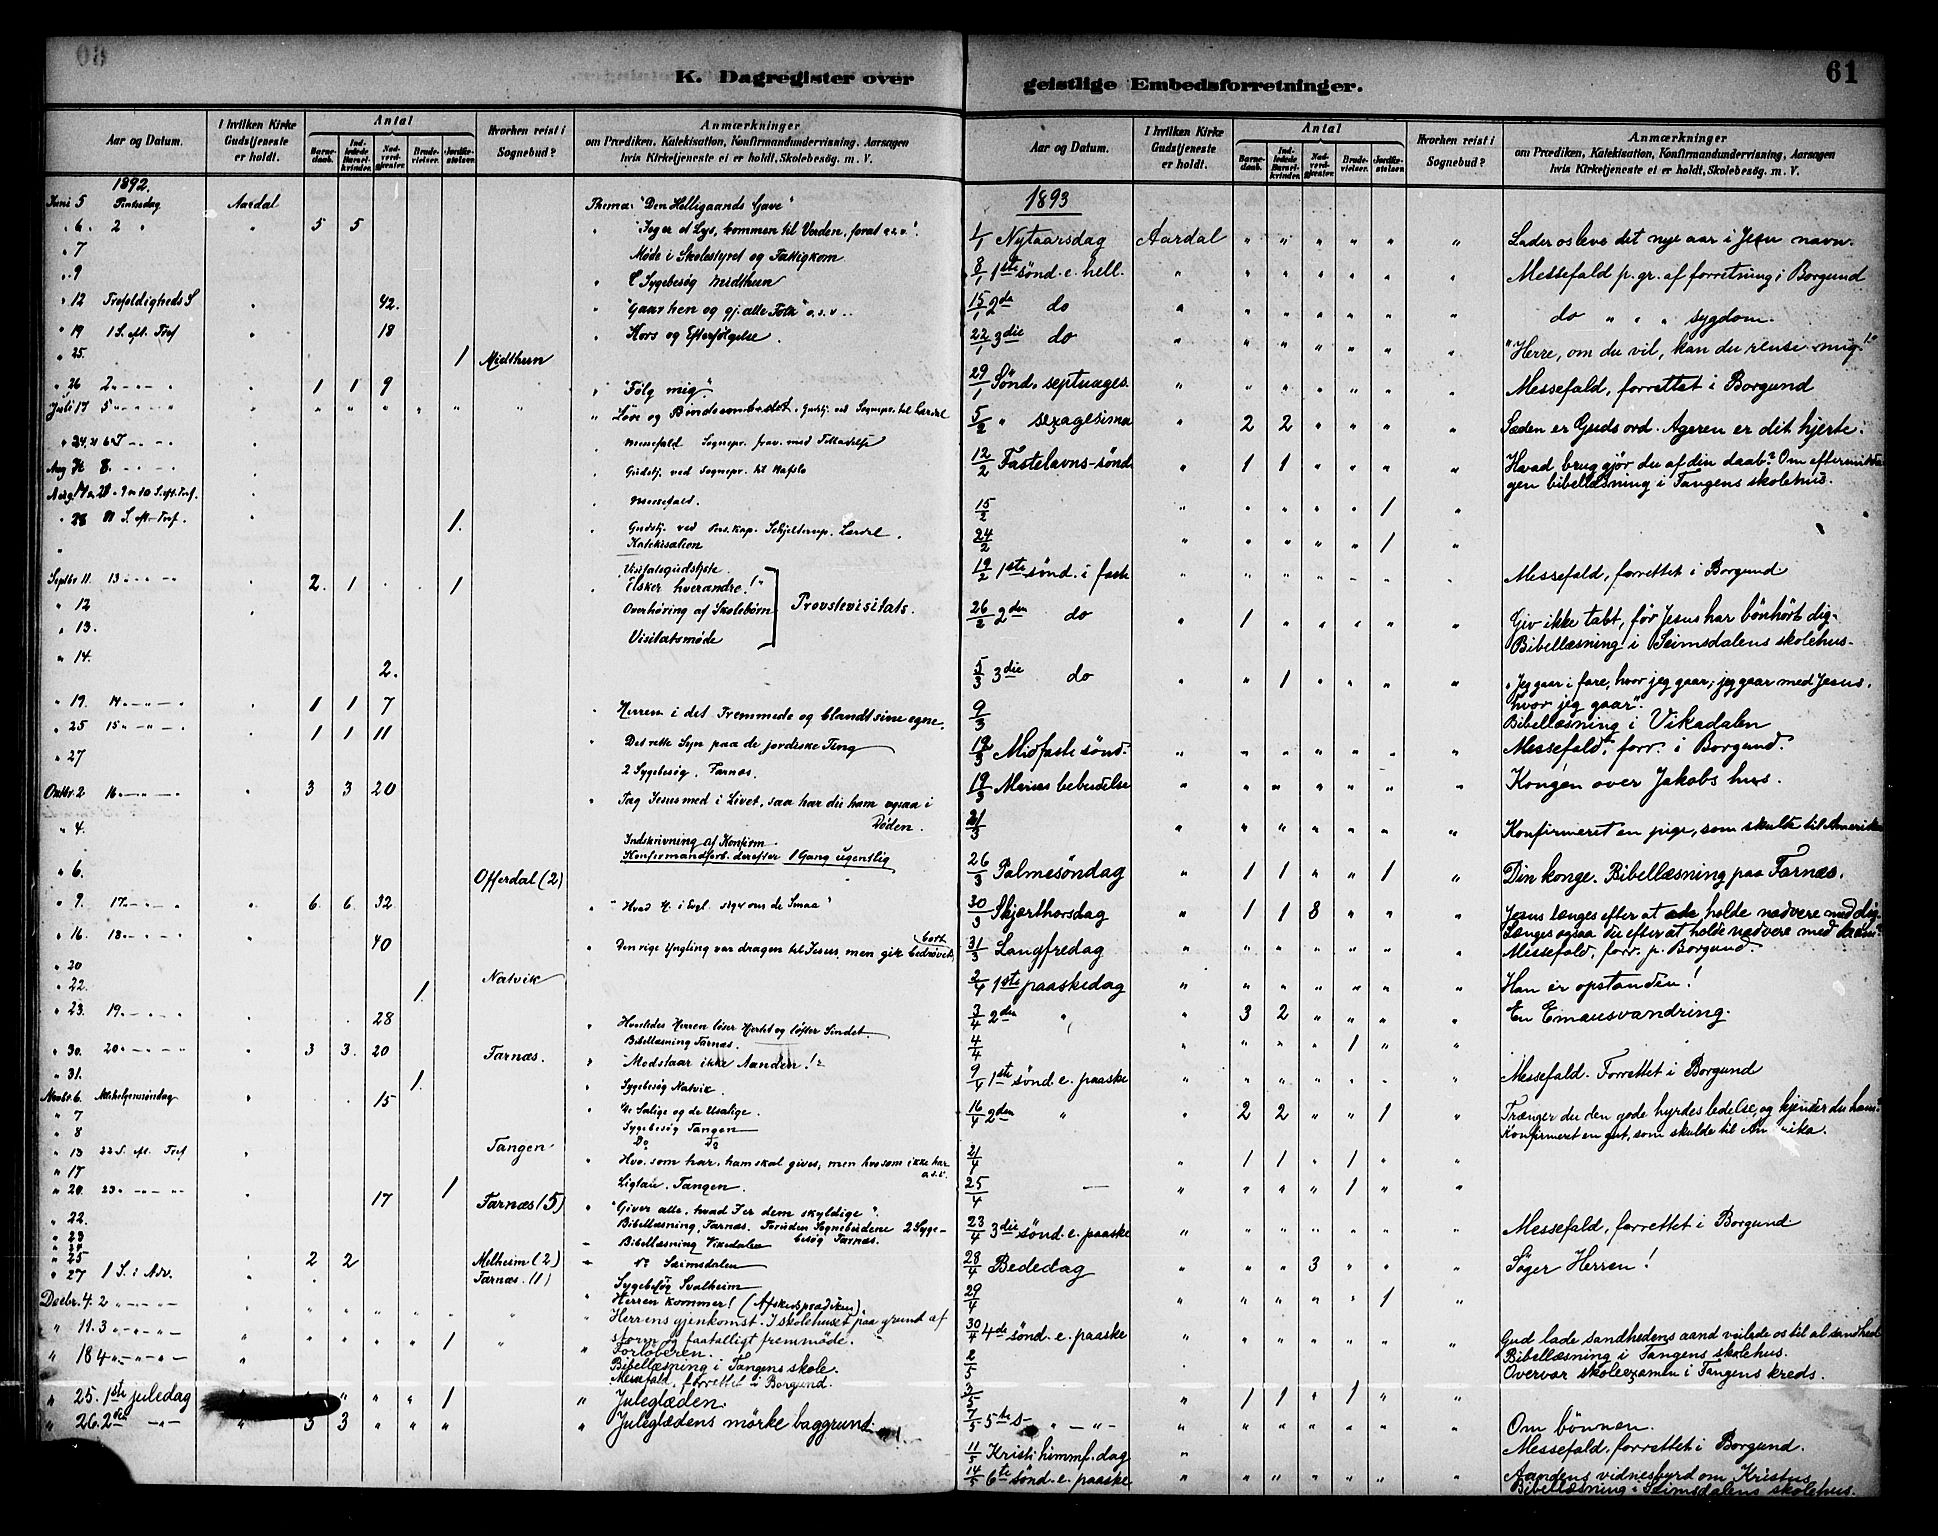 60
K. Dagregister over
Aar og Datum.
I hvilken Kirke Gudstjeneste er holdt.
Antal
Barnedaab.
Indledede Barselkvinder.
Nadverdgjester.
Brudevielser.
Jordfæstelser.
Hvorhen reist i Sognebud?
Anmærkninger
om Prædiken, Katekisation, Konfirmandundervisning, Aarsagen
hvis Kirketjeneste ei er holdt, Skolebesög. m. V.
1892.
Juni 5 Pintsedag Aardal Thema: "Den Helligaands Gave"
" 6. 2 " " 5 5 " "Jeg er et Lys, kommen til Verden, forat o.s.v."
" 7 Møde i Skolestyret og Fattigkom
" 9 " Sygebesög Midthun
" 12 Trefoldigheds S " 42. " "Gaar hen og gj. alle Folk" o.s.v...
" 19 1 S. eft. Tref " 18 " Kors og Efterfølgelse
" 25. 1 Midthun
" 26 2 " - " - " " 1 1 9 " "Følg mig".
Juli 17 5 " - " - " " " " " " " " " Løse og
" 24. 6 Messefald Sognepr. frav. med Tilladelse
Aug 8. " - " - " " Gudstj. ved Sognepr. til Hafslo
Aug. 14 & 21 - 9 & 10 S. eft. Tref. " Messefald.
" 28 11 S. eft. Tref. " 1. " Gudstj. ved Pers. Kap. Schjelderup. Lærdal.
" Katekisation
Septbr 11. 13 " - " - " " 2. 1 1 " "Elsker hverandre!"
" 12 Overhøring af Skolebørn Provstevisitats.
" 13. Visitatsmøde
" 14. 2.
" 19. 14 " - " - " " 1 1 7 " Herren i det Fremmede og blandt sine egne.
" 25 15 " - " - " " 1 1 11 " Det rette Syn paa de jordiske Ting
" 27 2 Sygebesøg, Farnæs.
Oktbr. 2 16 " - " - " " 3 3 20 " Tag Jesus med i Livet, saa har du ham ogsaa i
Døden.
" 4. Indskrivning af Konfirm
Konfirmandforb. derefter 1 Gang ugentlig
" 6. Offerdal (2)
" 9. 17 " - " - " " 6 6 32 " Hvad H. i Evgl. siger om de Smaa"
" 16. 18 " - " - " " 40 " Den rige Yngling var dragen til Jesus, men gik bort bedrøvet
" 20 Natvik
" 22. 1.
" 23. 19 " - " - " " 28 " Hvorledes Herren løser Hjertet og løfter Sindet
Bibellæsning Farnæs.
" 30. 20 " - " - " " 3 3. 20 Farnæs. " "Modstaar ikke Aanden!"
" 31. 1. Sygebesøg Natvik
Novbr. 6. Allehelgensöndag " 15 " De Salige og de Usalige.
" 7 Sygebesøg Tangen
" 8 Do Do
" 13 22 S. eft. Tref " Tangen " Hvo, som har, ham skal gives, men hvo som ikke har
o.s.v.
" 17 Ligtale, Tangen.
" 20. 23 " - " - " " 17 1 Farnæs (5) " "Giver alle, hvad I er dem skyldige".
" 22. Bibellæsning, Farnæs. Foruden Sognebudene 2 Syge-
" 23 Bibellæsning Vikedalen besøg Farnæs.
" 25 Melheim (2) Do Seimsdalen
" 27 1 S. i Adv. " 2 2 Farnæs. (1) Sygebesøg Svalheim
Decbr. 4. 2 " - " - " " Herren kommer! (Afskedsprædiken).
" 11. 3 " - " - " " 1 Herrens gjenkomst. I skolehuset paa grund af
storm og faatalligt fremmöde.
" 18 4 " - " - " " Forlöberen.
Bibellæsning i Tangens skole.
Messefald, forrettet i Borgund.
" 25. 1ste juledag " " " " 1 " Juleglæden.
" 26. 2den " - " " 3 3 " " " " Juleglædens mörke baggrund.
geistlige Embedsforretninger.
61
Aar og Datum.
I hvilken Kirke Gudstjeneste er holdt.
Antal
Barnedaab.
Indledede Barselkvinder.
Nadverdgjester.
Brudevielser.
Jordfæstelser.
Hvorhen reist i Sognebud?
Anmærkninger
om Prædiken, Katekisation, Konfirmandundervisning, Aarsagen
hvis Kirketjeneste ei er holdt, Skolebesög. m. V.
1893
1/1 Nytaarsdag Aardal " " " " " " Lader os leve det nye aar i Jesu navn.
8/1 1ste sönd. e. hell. " " " " " " " Messefald p. gr. af forretning i Borgund
15/1 2da do " " " " " " " do " " " sygdom.
22/1 3die do " " " " " " " "Herre, om du vil, kan du rense mig!"
29/1 Sönd. septuages. " " " " " " " Messefald, forrettet i Borgund
5/2 " sexagesima " 2 2 " " " " Sæden er Guds ord. Ageren er dit hjerte.
12/2 Fastelavns-sönd " 1 1 " " " " Hvad brug gjör du af din daab? Om eftermidda-
gen bibellæsning i Tangens skolehus.
15/2 " " " " " 1 "
24/2 " " " " " 1 "
19/2 1ste sönd. i faste " " " " " " " Messefald, forrettet i Borgund
26/2 2den do " 1 " " " " " Giv ikke tabt, för Jesus har bönhört dig.
Bibellæsning i Seimsdalens skolehus.
5/3 3die do " " 1 " " " " "Jeg gaar i fare, hvor jeg gaar; jeg gaar med Jesus,
hvor jeg gaar".
9/3 Bibellæsning i Vikadalen
12/3 Midfaste sönd. " " " " " " " Messefald, forr. i Borgund.
19/3 Marias bebudelse " " " " " " " Kongen over Jakobs hus.
21/3 " " " " " " " Konfirmeret en pige, som skulde til Amerika
26/3 Palmesöndag " 1 1 " " 1 " Din konge. Bibellæsning paa Farnæs.
30/3 Skjærthorsdag " 1 1 8 " " " Jesus længes efter at holde nadvere med dig.
Længes ogsaa du efter at holde nadvere med ham?
31/3 Langfredag " " " " " " " Messefald, forr. p. Borgund.
2/4 1ste paaskedag " " " " " " " Han er opstanden!
3/4 2den " " 3 2 " " " " En Emausvandring.
4/4 " " " " 1 " "
9/4 1ste sönd. e. paaske " " " " " " " Messefald. Forrettet i Borgund
16/4 2den " " 2 2 " " 1 " Trænger du den gode hyrdes ledelse, og kjender du ham?
Konfirmeret en gut, som skulde til Amerika.
21/4 " 1 1 " 1 " "
25/4 — " " " " 1 " "
23/4 3die sönd. e. paaske " " " " " " " Messefald, forrettet i Borgund
28/4 Bededag " " " 3 " " " Söger Herren!
29/4 " " " " " 1 "
30/4 4de sönd. e. paaske " " " " " " " Gud lade sandhedens aand veilede os til al sandhed
2/5 Bibellæsning i Tangens skolehus.
Overvar skoleexamen i Tangens kreds.
3/5 " 1 1 " 1 " "
7/5 5te s- " - " - " " " " " " " Om bönnen.
11/5 Kristi himmf. dag " Messefald, forrettet i Borgund.
14/5 6te sönd. e. paaske " " " " " " " Aandens vidnesbyrd om Kristus
Bibellæsning i Seimsdalens skolehus.